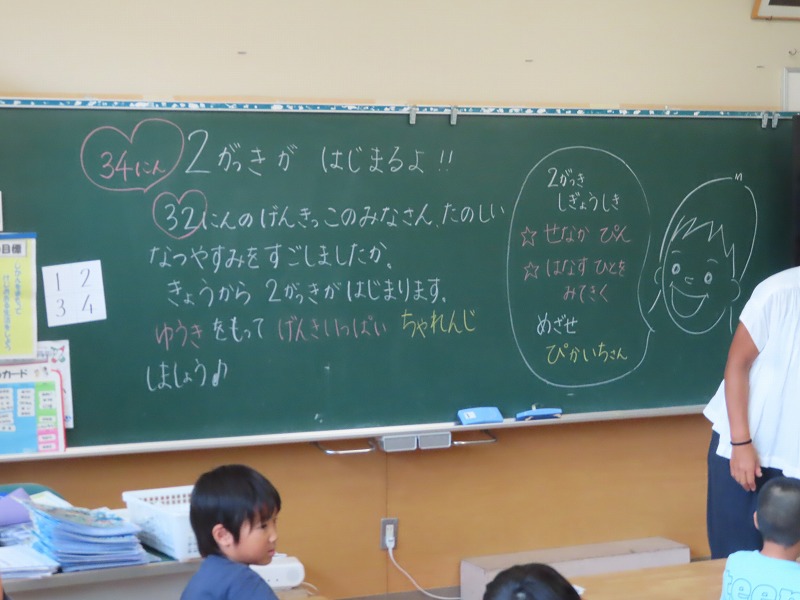 34にん
2がっきが はじまるよ!!
32にんのげんきっこのみなさん、たのしい
なつやすみをすごしましたか。
きょうから 2がっきがはじまります。
ゆうきをもって げんきいっぱい ちゃれんじ
しましょう♪
2がっき
しぎょうしき
☆ せなか ぴん
☆ はなす ひとを
みてきく
めざせ
ぴかいちさん
1 2
3 4
目標
カード
teen